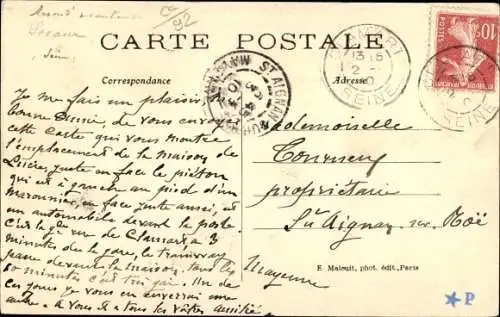 CARTE POSTALE
Correspondance
Adresse
Je me fais un plaisir, ma
bonne Lucie, de vous envoyer
cette carte qui vous montre
l'emplacement de la maison de
Lucie, juste en face le piéton
qui est à gauche au pied d'un
marronnier, en face juste aussi, est
un automobile devant la poste.
C'est la rue de Clamart, à 3
minutes de la gare, le tramway
passe devant la maison, tous les
10 minutes c'est très gai. Un de
ces jours je vous en enverrai une
autre. A vous et à tous les vôtres amitiés
Mademoiselle
Tourneux
propriétaire
St Aignan sur Roë
Mayenne
E. Malcuit, phot. édit., Paris
CLAMART
SEINE
ST AIGNAN SUR ROË
MAYENNE
10c
POSTES
P
92